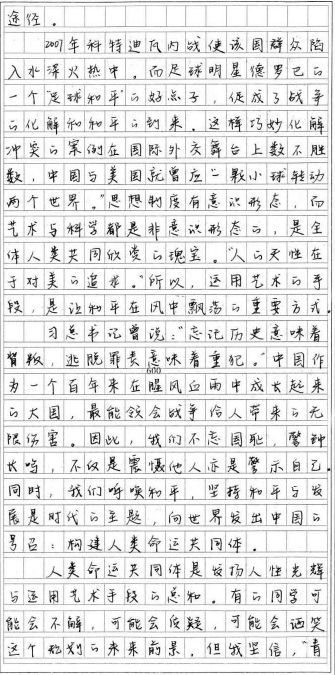 途径。
2007年科特迪瓦内战使该国群众陷
入水深火热中。而足球明星德罗巴的
一个“足球和平”的好点子，促成了战争
的化解和和平的到来。这样巧妙化解
冲突的案例在国际外交舞台上数不胜
数，中国与美国就曾应“一颗小球转动
两个世界。”思想制度有意识形态，而
艺术与科学都是非意识形态的，是全
体人类共同欣赏的瑰宝。“人的天性在
于对美的追求。”所以，运用艺术的手
段，是让和平在风中飘荡的重要方式。
习总书记曾说：“忘记历史意味着
背叛，逃脱罪责意味着重犯。”中国作
600
为一个百年来在腥风血雨中成长起来
的大国，最能领会战争给人带来的无
限伤害。因此，我们不忘国耻，警钟
长鸣，不仅是震慑他人亦是警示自己。
同时，我们呼唤和平，坚持和平与发
展是时代的主题，向世界发出中国的
号召：构建人类命运共同体。
人类命运共同体是发扬人性光辉
与运用艺术手段的总和。有的同学可
能会不解，可能会质疑，可能会讪笑
这个规划的未来前景。但我坚信，“青